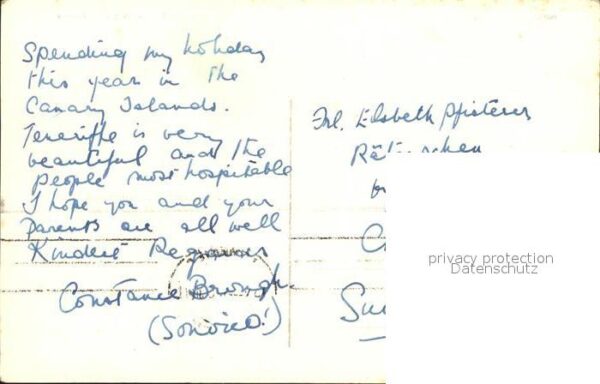 Spending my holiday
this year in the
Canary Islands.
Teneriffe is very
beautiful and the
people most hospitable
I hope you and your
Parents are all well
Kindest Regards
Constance Brough.
Frl. Elsbeth Pfisterer
privacy protection
Datenschutz